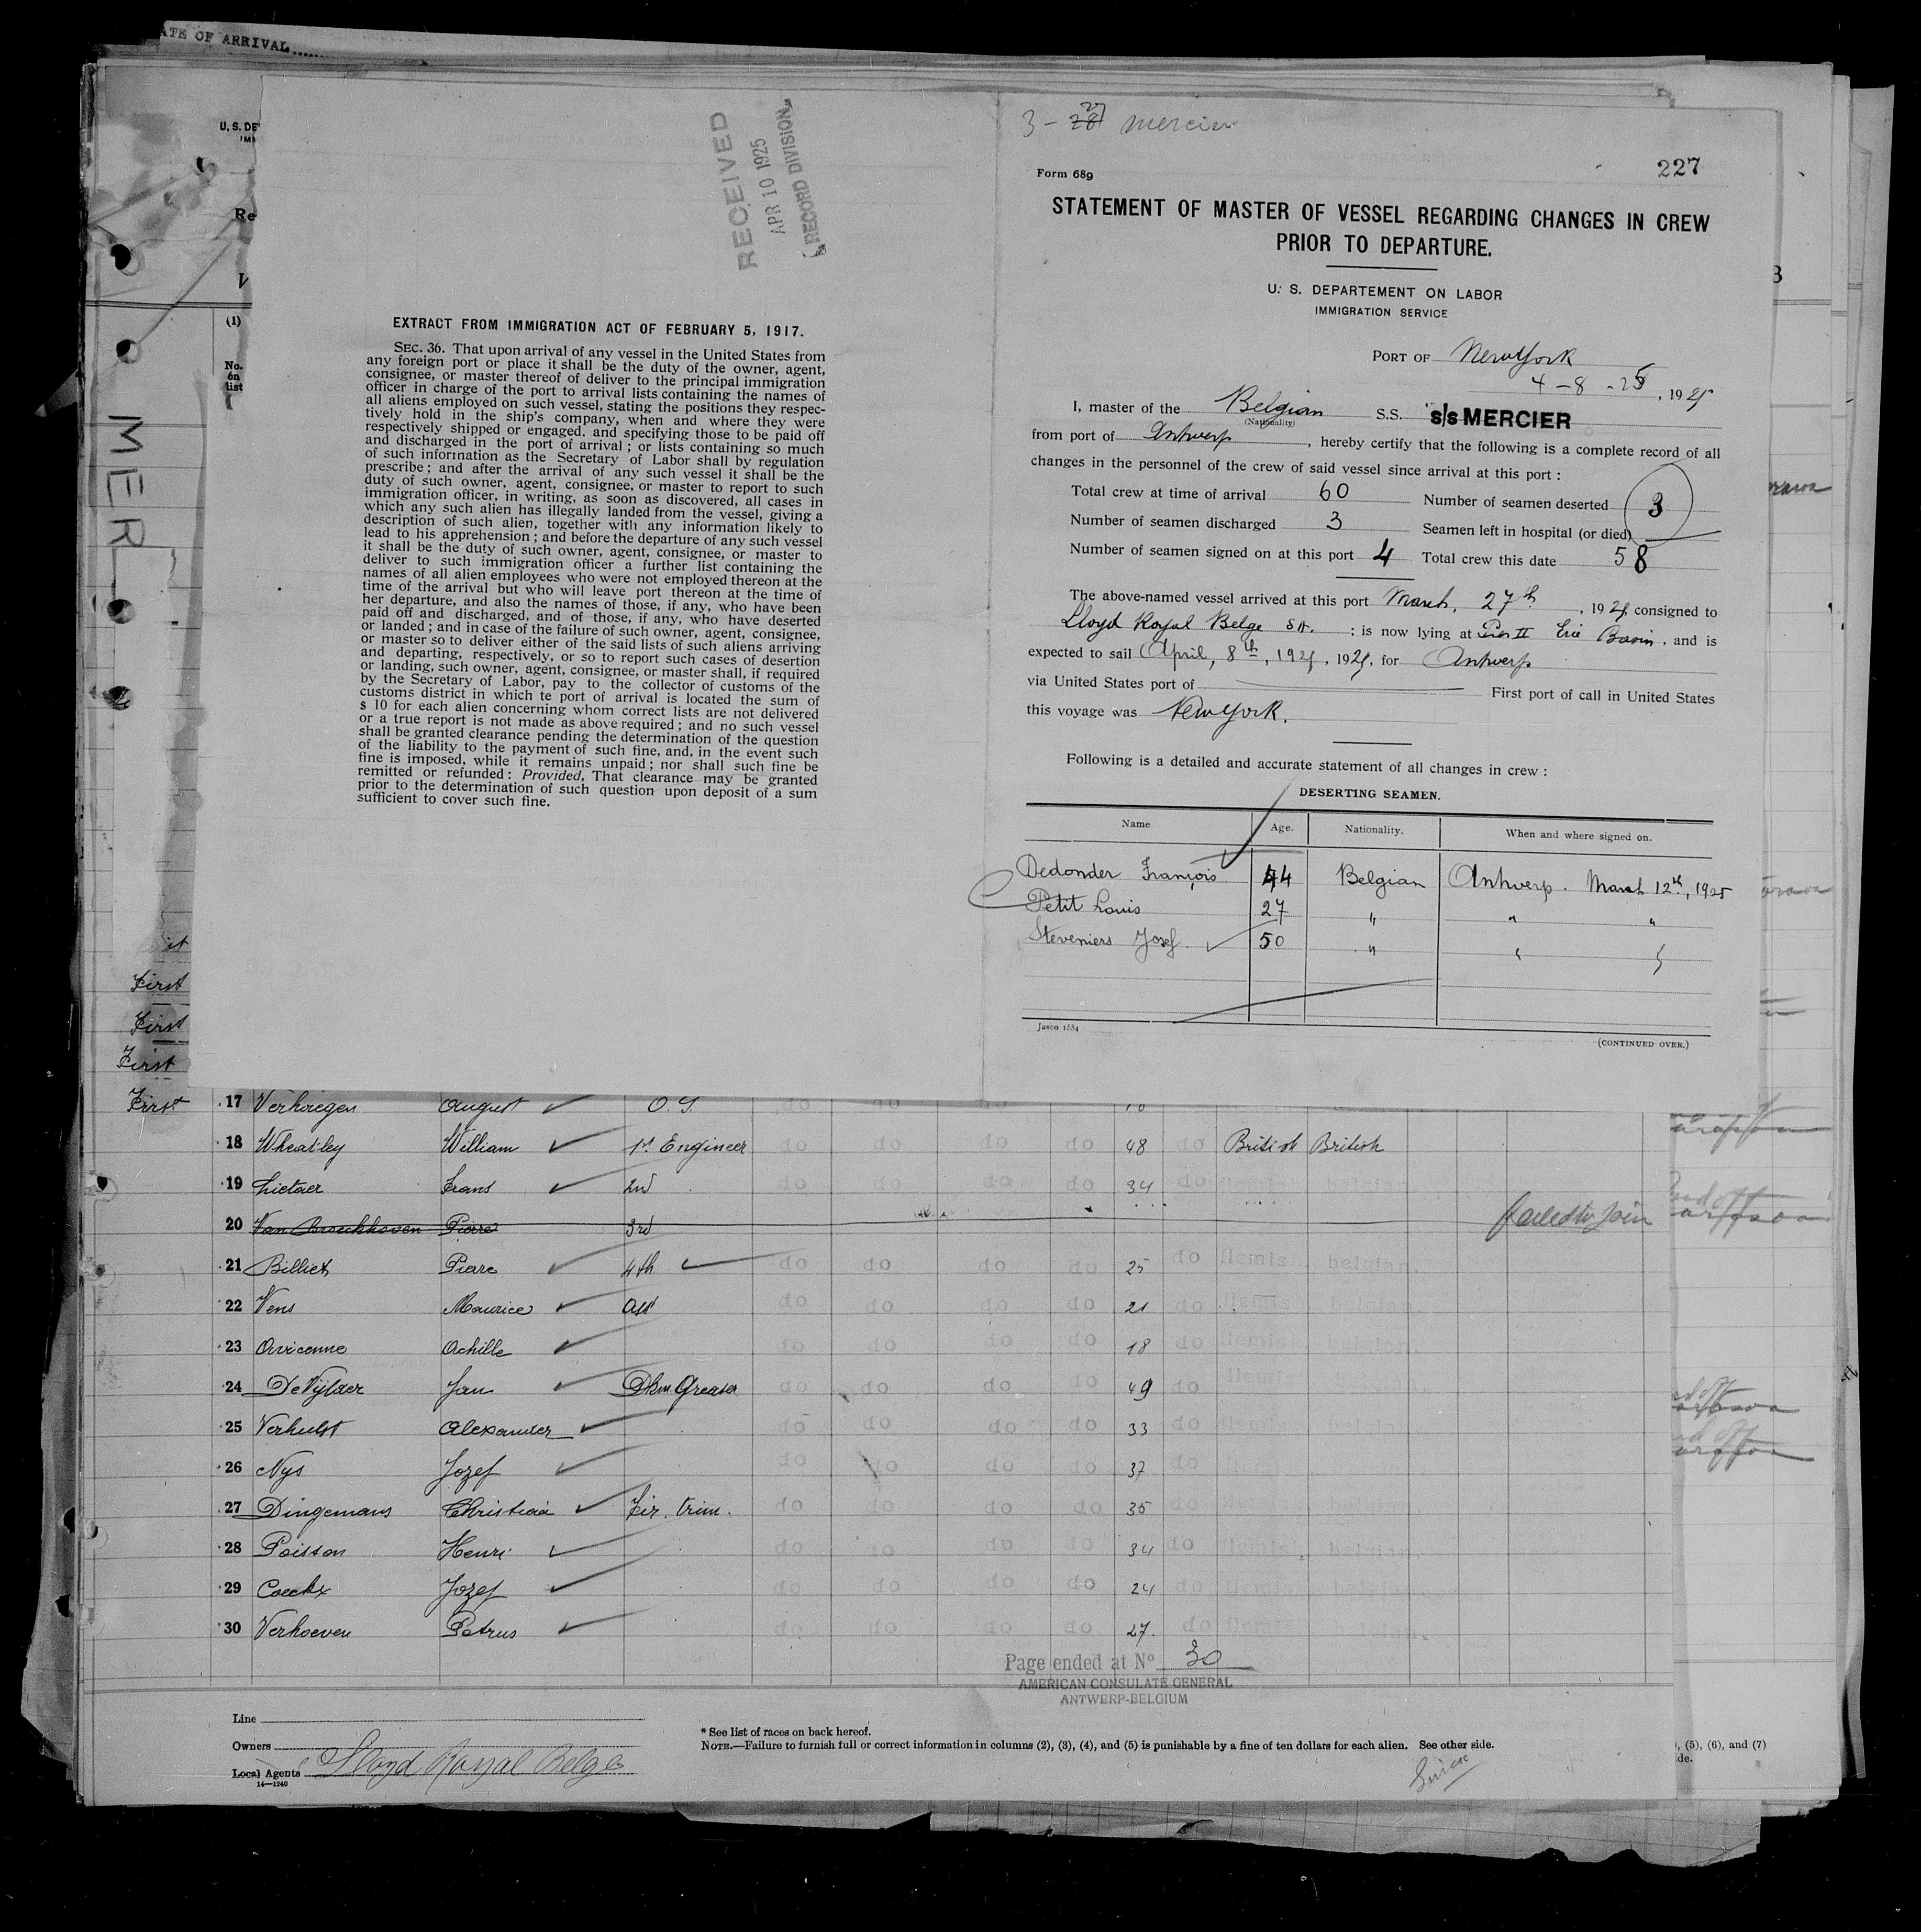 ATE OF ARRIVAL
U. S. DE
IMM
Re
V
(1)
No.
on
list
MER
RECEIVED
APR 10 1925
RECORD DIVISION
EXTRACT FROM IMMIGRATION ACT OF FEBRUARY 5, 1917.
SEC. 36. That upon arrival of any vessel in the United States from
any foreign port or place it shall be the duty of the owner, agent,
consignee, or master thereof of deliver to the principal immigration
officer in charge of the port to arrival lists containing the names of
all aliens employed on such vessel, stating the positions they respec-
tively hold in the ship's company, when and where they were
respectively shipped or engaged, and specifying those to be paid off
and discharged in the port of arrival; or lists containing so much
of such information as the Secretary of Labor shall by regulation
prescribe; and after the arrival of any such vessel it shall be the
duty of such owner, agent, consignee, or master to report to such
immigration officer, in writing, as soon as discovered, all cases in
which any such alien has illegally landed from the vessel, giving a
description of such alien, together with any information likely to
lead to his apprehension; and before the departure of any such vessel
it shall be the duty of such owner, agent, consignee, or master to
deliver to such immigration officer a further list containing the
names of all alien employees who were not employed thereon at the
time of the arrival but who will leave port thereon at the time of
her departure, and also the names of those, if any, who have been
paid off and discharged, and of those, if any, who have deserted
or landed; and in case of the failure of such owner, agent, consignee,
or master so to deliver either of the said lists of such aliens arriving
and departing, respectively, or so to report such cases of desertion
or landing, such owner, agent, consignee, or master shall, if required
by the Secretary of Labor, pay to the collector of customs of the
customs district in which te port of arrival is located the sum of
$ 10 for each alien concerning whom correct lists are not delivered
or a true report is not made as above required; and no such vessel
shall be granted clearance pending the determination of the question
of the liability to the payment of such fine, and, in the event such
fine is imposed, while it remains unpaid; nor shall such fine be
remitted or refunded: Provided, That clearance may be granted
prior to the determination of such question upon deposit of a sum
sufficient to cover such fine.
3 - 28 27 Mercier
227
Form 689
STATEMENT OF MASTER OF VESSEL REGARDING CHANGES IN CREW
PRIOR TO DEPARTURE.
U. S. DEPARTEMENT ON LABOR
IMMIGRATION SERVICE
PORT OF New York
4 - 8 - 25, 1925
I, master of the Belgian S.S. s/s MERCIER
(Nationality)
from port of Antwerp, hereby certify that the following is a complete record of all
changes in the personnel of the crew of said vessel since arrival at this port :
Total crew at time of arrival 60 Number of seamen deserted 3
Number of seamen discharged 3 Seamen left in hospital (or died)
Number of seamen signed on at this port 4 Total crew this date 58
The above-named vessel arrived at this port March, 27th, 1925 consigned to
Lloyd Royal Belge SA. ; is now lying at Pier II Erie Basin, and is
expected to sail April, 8th, 1925, 1925, for Antwerp
via United States port of First port of call in United States
this voyage was New York.
Following is a detailed and accurate statement of all changes in crew :
DESERTING SEAMEN.
Name Age. Nationality. When and where signed on.
Dedonder François 44 Belgian Antwerp. March 12th, 1925
Petit Louis 27 " " "
Steveniers Jozef. 50 " " "
Jasco 1554
(CONTINUED OVER.)
First
First
First
First 17 Verhoegen August O.S. do do do
18 Wheatley William 1st Engineer do do do do 48 do British British
19 Lietaer Frans 2nd do do do do 34 do flemish belgian.
20 Van Broeckhoven Pierre 3rd failed to join
21 Billiet Piare 4th do do do do 25 do flemish belgian.
22 Vens Maurice asst do do do do 21 do flemish belgian.
23 Achille do do do do 18 do flemish belgian.
24 De Vylder Jan Dkm. Greaser do do do do 49 do flemish
25 Verhulst Alexander do do do do 33 do flemish belgian.
26 Nys Jozef do do do do 37 do
27 Dingemans Christiaa Fir. trim. do do do do 35 do
28 Poisson Henri do do do do 34 do flemish, belgian.
29 Coeckx Jozef do do do do 24 do flemish belgian
30 Verhoeven Petrus do do do do 27. do flemish belgian.
Page ended at No 30
AMERICAN CONSULATE GENERAL
ANTWERP-BELGIUM
Line
Owners
Local Agents Lloyd Royal Belge
14—1240
* See list of races on back hereof.
NOTE.—Failure to furnish full or correct information in columns (2), (3), (4), and (5) is punishable by a fine of ten dollars for each alien. See other side.
), (5), (6), and (7)
ide.